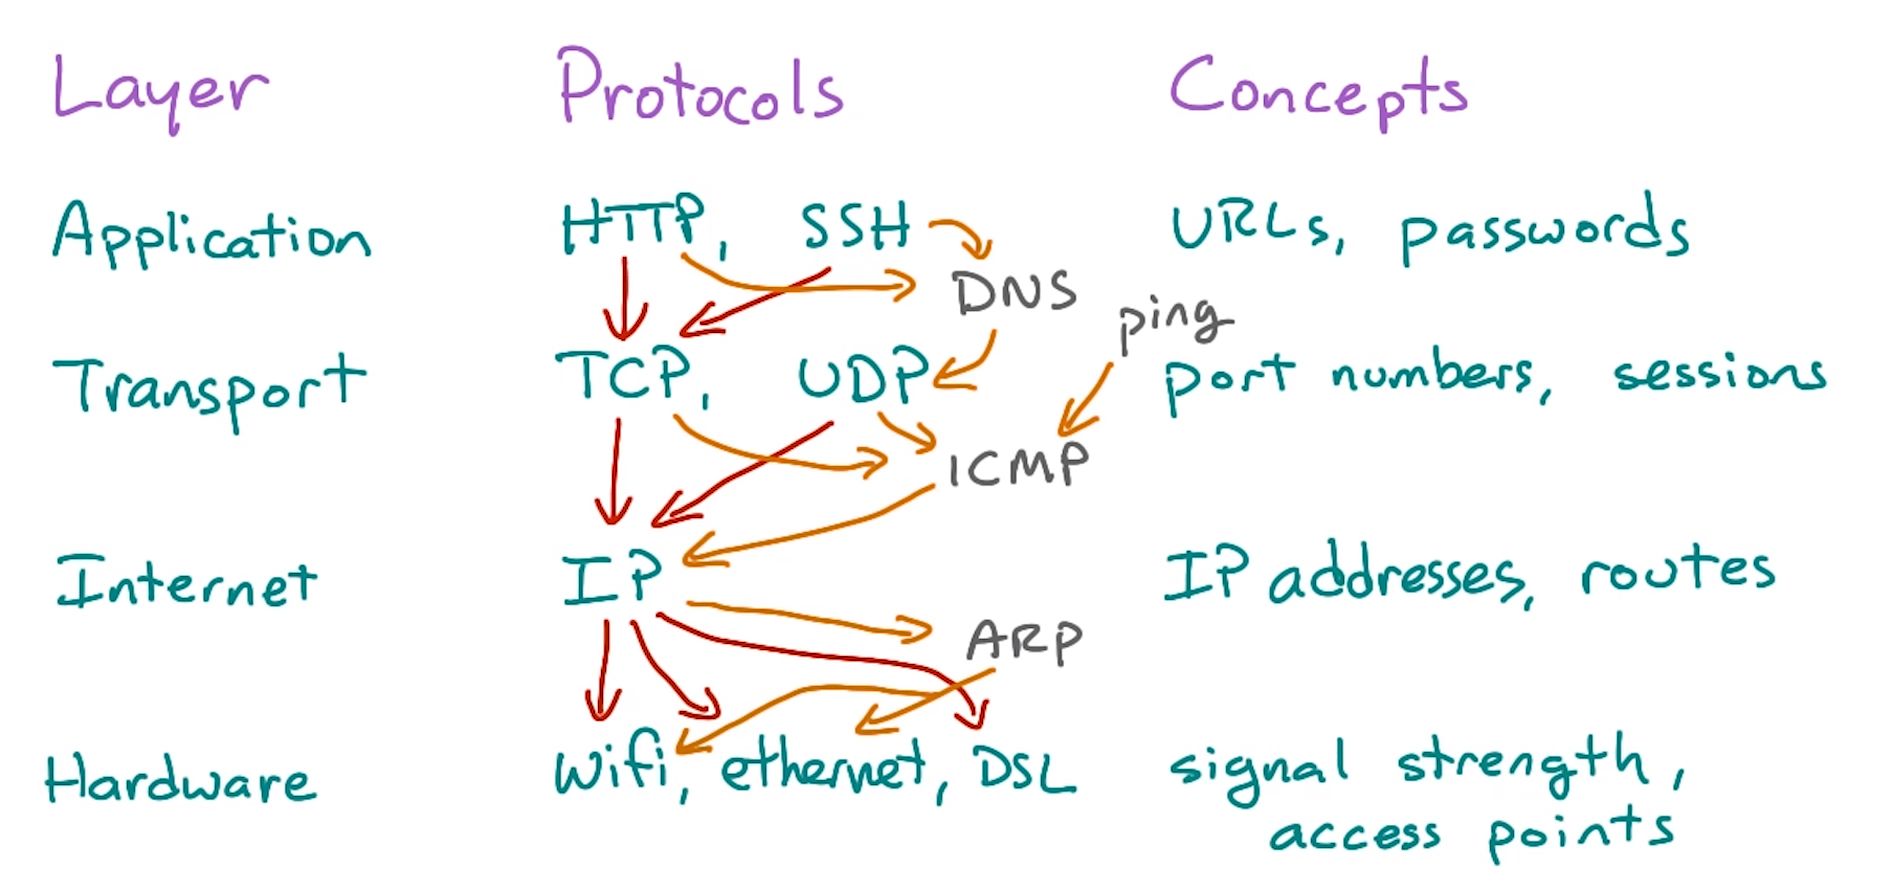 Layer Protocols Concepts
Application HTTP, SSH URLs, passwords
DNS
ping
Transport TCP, UDP port numbers, sessions
ICMP
Internet IP IP addresses, routes
ARP
Hardware wifi, ethernet, DSL signal strength,
access points